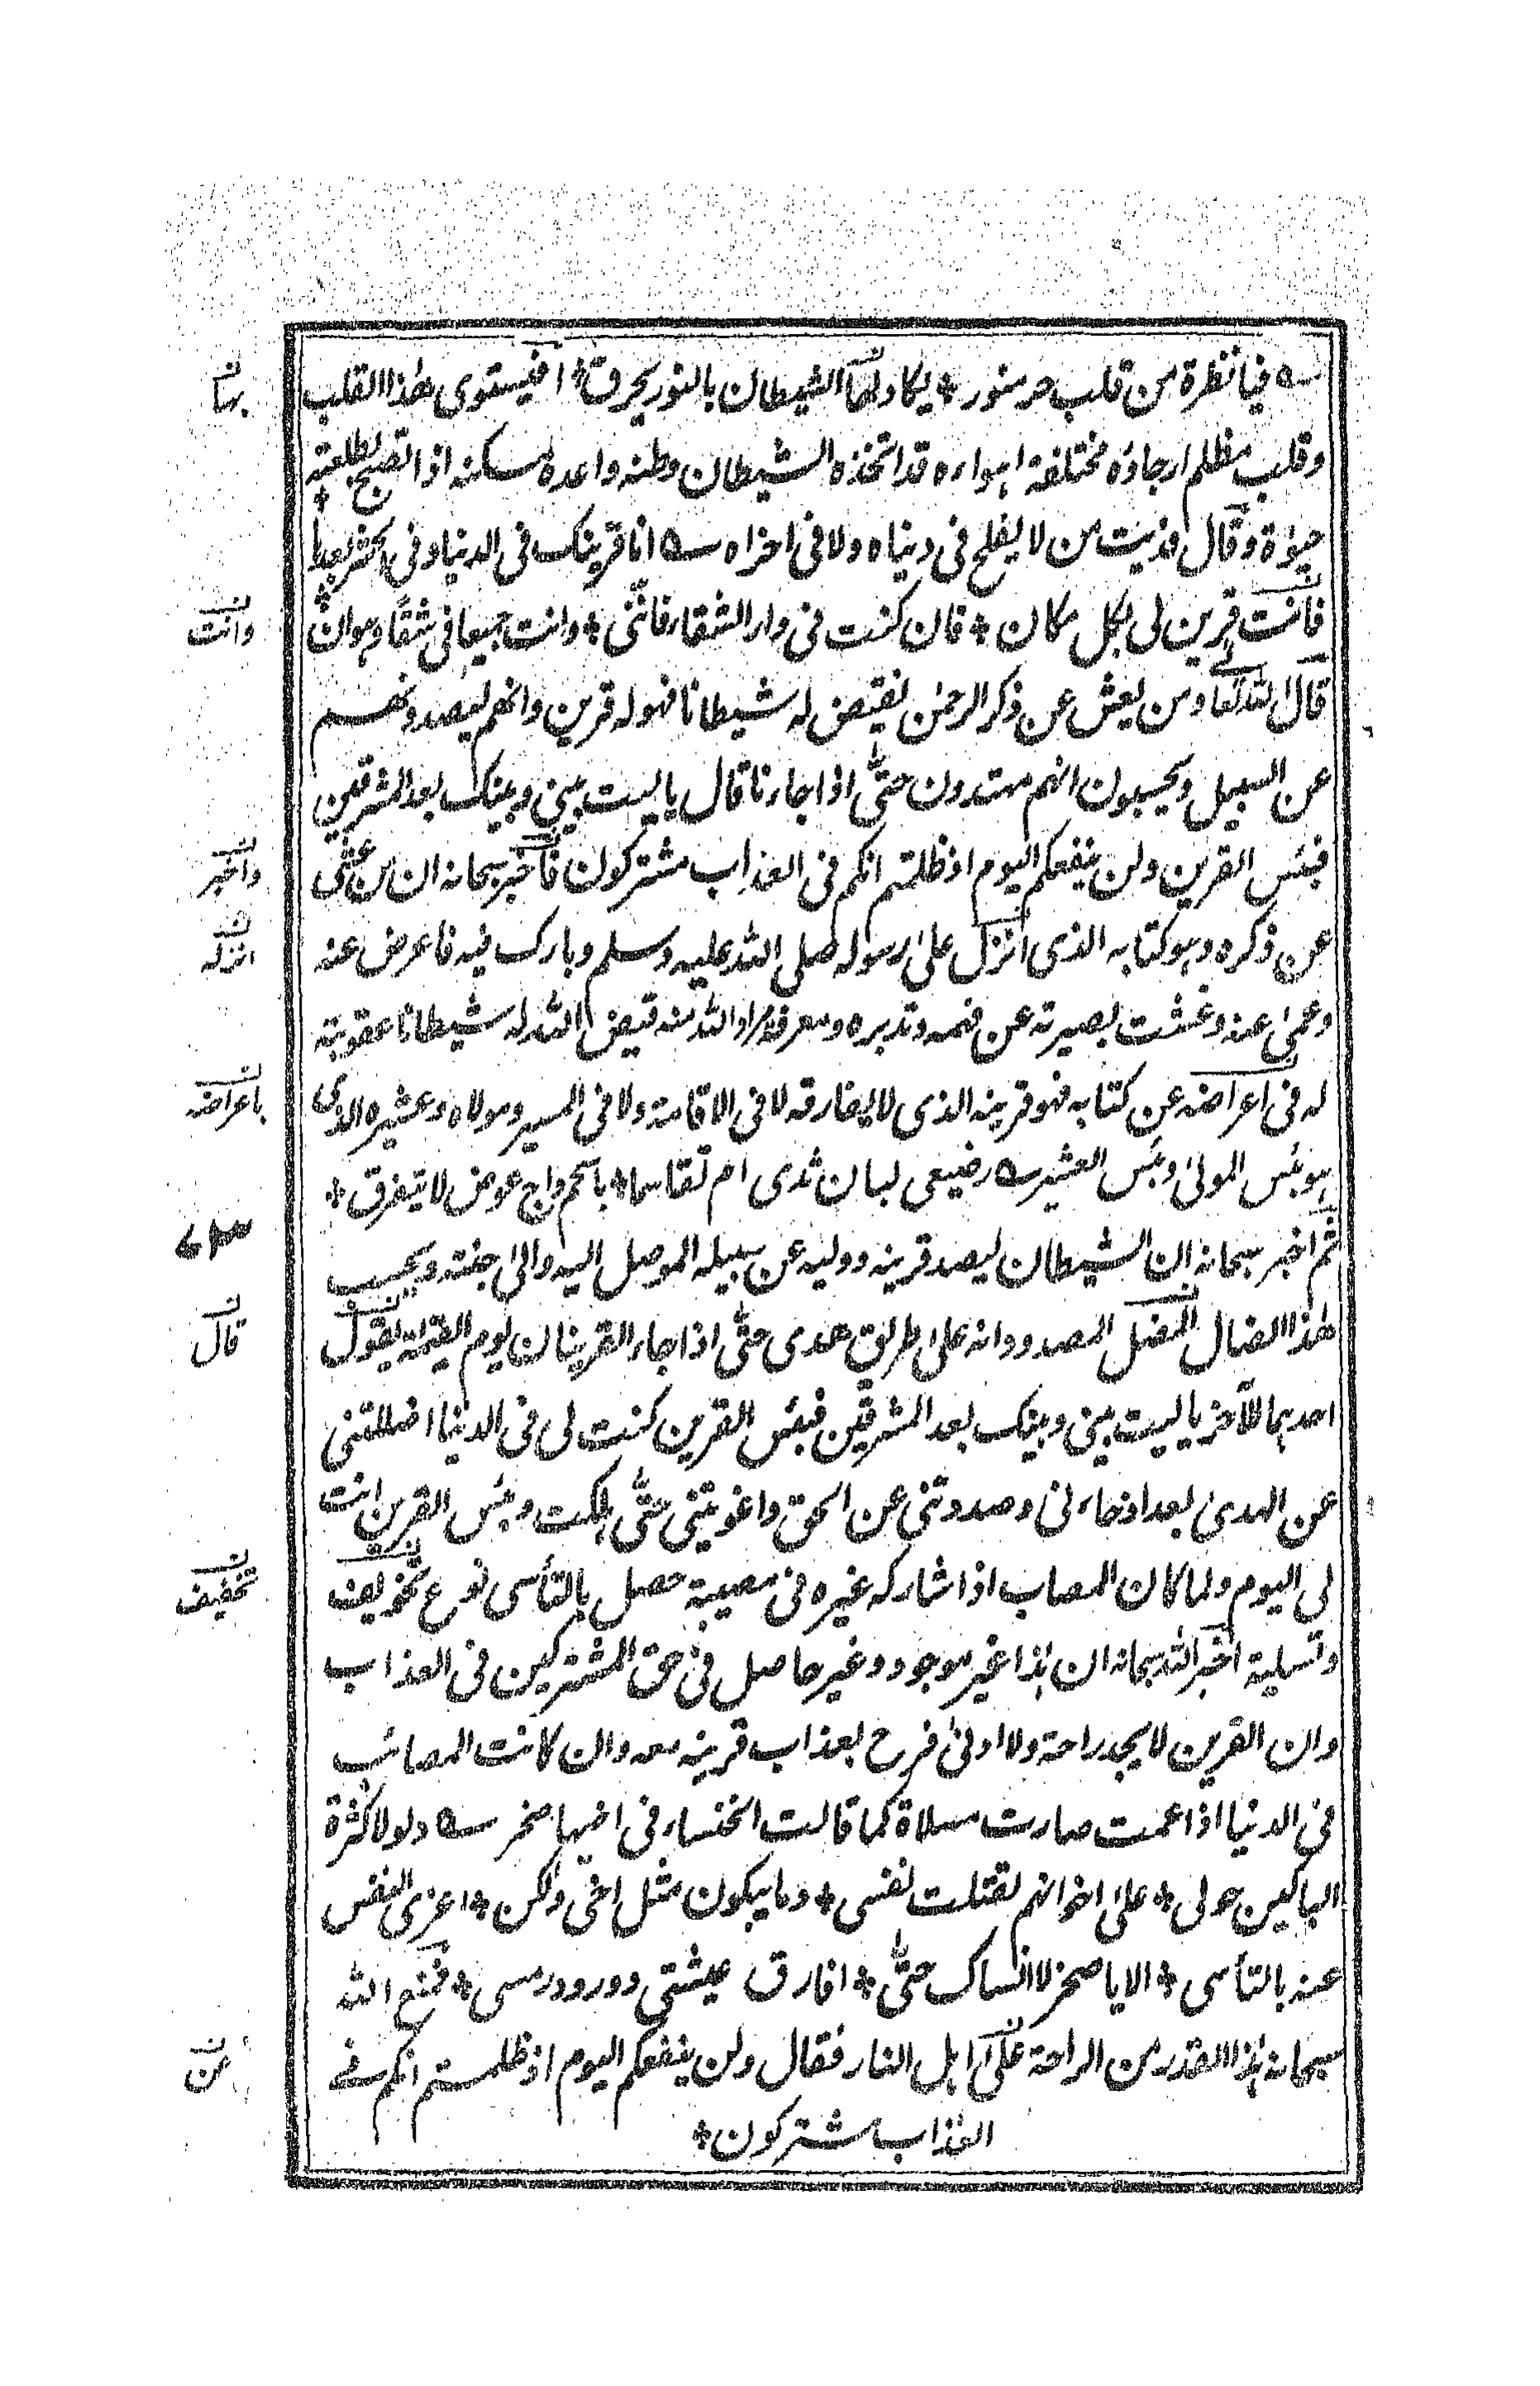 فيا نظرة من قلب حر منور * يكاد لها الشيطان بالنور يحرق * افيستوى هذا القلب
بها
وقلب مظلم ارجاؤه مختلفة اهواءه قد اتخذه الشيطان وطنه واعده مسكنه اذا تصبح بطلعته *
حيوة وقال فديت من لا يفلح فى دنياه ولا فى اخراه انا قرينك فى الدنيا وفى الحشر بعدها *
فانت قرين لى بكل مكان * فان كنت فى دار الشقاء فانّنى * وانت جميعا فى شقا وهوان
وانت
قال الله تعا ومن يعش عن ذكر الرحمن نقيض له شيطانا فهو له قرين وانهم ليصدونهم
عن السبيل ويحسبون انهم مهتدون حتّى اذا جاءنا قال يا ليت بينى وبينك بعد المشرقين
فبئس القرين ولن ينفعكم اليوم اذ ظلمتم انكم فى العذاب مشتركون فاخبر سبحانه ان من عشى
واخبر
عن ذكره وهو كتابه الذى انزل على رسوله صلى الله عليه وسلم وبارك فيه فاعرض عنه
انزله
وعمى عنه وغشت بصيرته عن فهمه وتدبره ومعرفة مراد الله منه قيض الله له شيطانا عقوبة
له فى اعراضه عن كتابه فهو قرينه الذى لا يفارقه لا فى الاقامة ولا فى المسير ومولاه وعشيره الذى
باعراضه
هو بئس المولى وبئس العشير رضيعى لبان ثدى ام تقاسما * باسحم داج عوض لا يتفرق *
ثم اخبر سبحانه ان الشيطان ليصد قرينه ووليه عن سبيله الموصل اليه والى جنته ويحسب
هذا الضال المضل المصدود انه على طريق هدى حتّى اذا جاء القرينان يوم القيمة يقول
قال
احدهما للآخر يا ليت بينى وبينك بعد المشرقين فبئس القرين كنت لى فى الدنيا اضللتنى
عن الهدى بعد اذ جاءنى وصددتنى عن الحق واغويتنى حتّى هلكت وبئس القرين انت
لى اليوم ولما كان المصاب اذا شاركه غيره فى مصيبة حصل بالتأسى نوع تخويف
تخفيف
وتسلية اخبر الله سبحانه ان هذا غير موجود وغير حاصل فى حق المشتركين فى العذاب
وان القرين لا يجد راحة ولا ادنى فرح بعذاب قرينه معه وان كانت المصائب
فى الدنيا اذا عمت صارت مسلاة كما قالت الخنساء فى اخيها صخر ولولا كثرة
الباكين حولى * على اخوانهم لقتلت نفسى * وما يبكون مثل اخى ولكن * اعزى النفس
عنه بالتأسى * الا يا صخر لا انساك حتّى * افارق عيشتى و درود رمسى * فمنع الله
سبحانه هذا القدر من الراحة على اهل النار فقال ولن ينفعكم اليوم اذ ظلمتم انكم فے
عن
العذاب مشتركون *